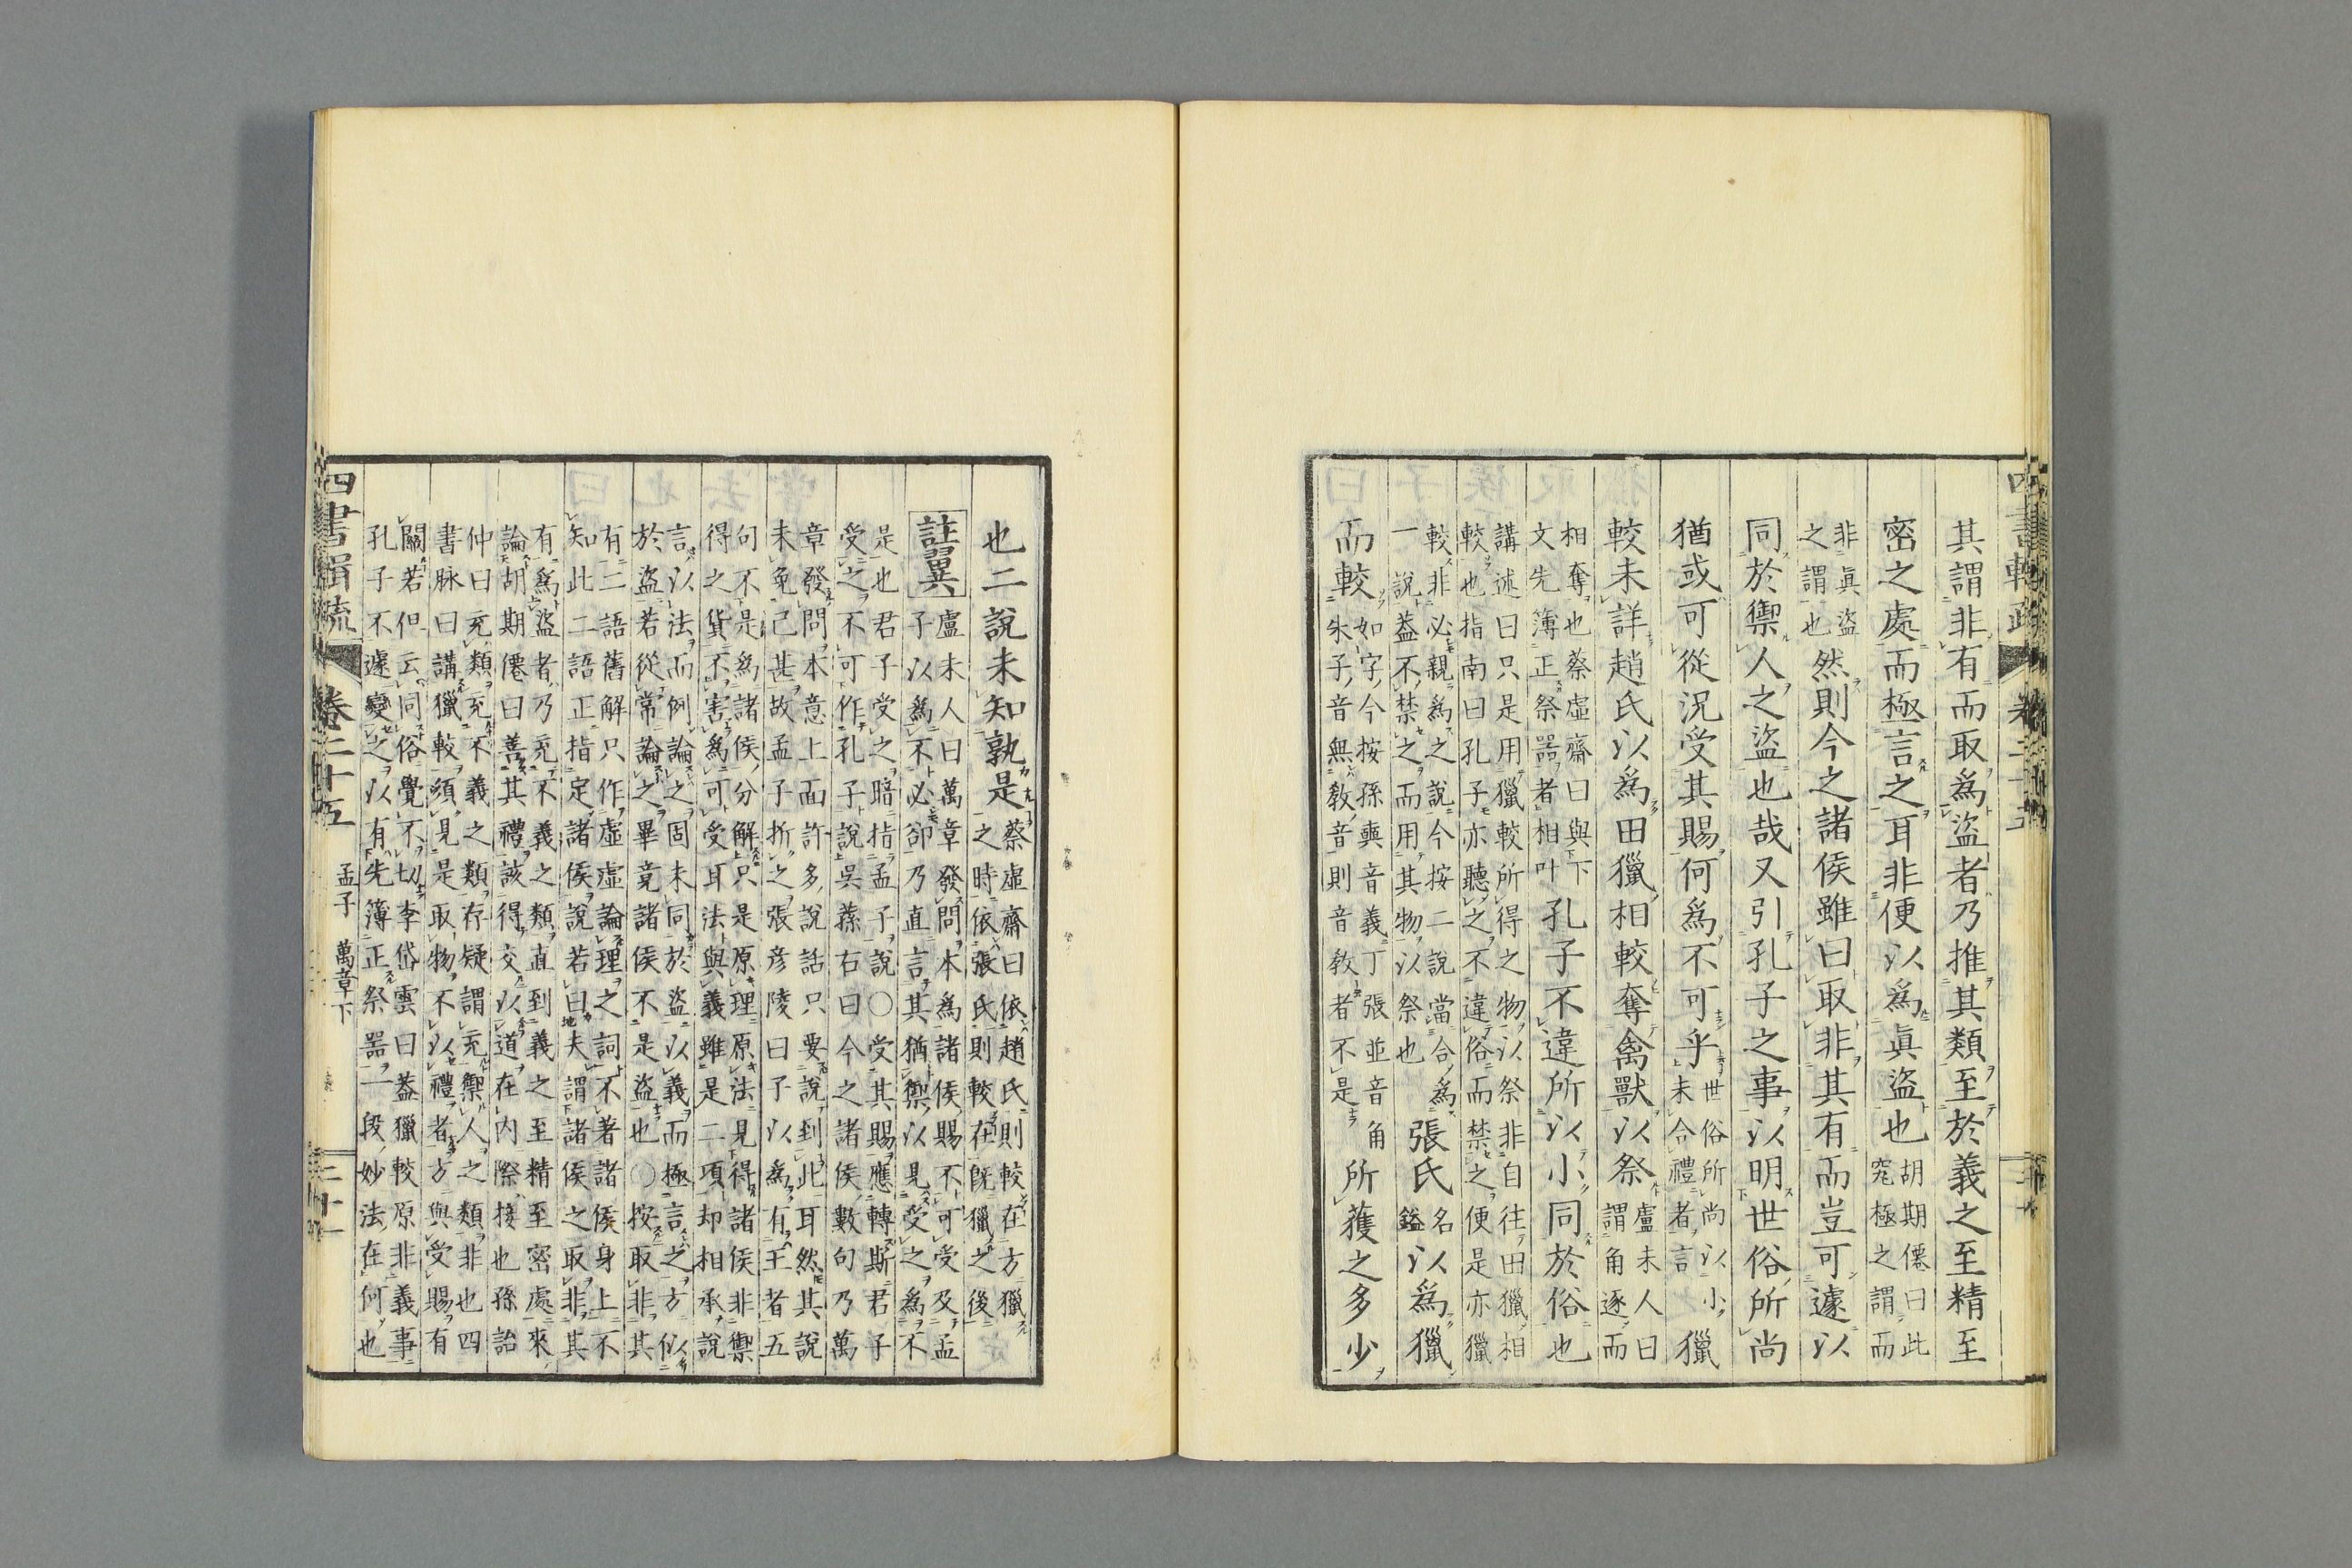 其謂非有而取爲盜者乃推其類至於義之至精至
密之處而極言之耳非便以爲眞盜也胡期僊曰此
究極之謂而
非眞盜
之謂也然則今之諸侯雖曰取非其有而豈可遽以
同於禦人之盜也哉又引孔子之事以明世俗所尚
猶或可從況受其賜何爲不可乎世俗所尚以小
未合禮者言獵
較未詳趙氏以爲田獵相較奪禽獸以祭盧未人曰
謂角逐而
相奪也蔡虛齋曰與下
文先簿正祭器者相叶孔子不違所以小同於俗也
講述曰只是用獵較所得之物以祭非自往田獵相
較也指南曰孔子亦聽之不違俗而禁之便是亦獵
較非必親爲之說今按二說當合爲
一說蓋不禁之而用其物以祭也張氏名
鎰以爲獵
而較如字今按孫奭音義丁張並音角
朱子音無敎音則音敎者不是所獲之多少
四書輯疏
卷二十五
也二說未知孰是蔡虛齋曰依趙氏則較在方獵
之時依張氏則較在旣獵之後
註翼盧未人曰萬章發問本爲諸侯賜不可受及孟
子以爲不必卻乃直言其猶禦以見受之爲不
是也君子受之暗指孟子說○受其賜應轉斯君子
受之不可作孔子說吳蓀右曰今之諸侯數句乃萬
章發問本意上面許多說話只要說到此耳然其說
未免己甚故孟子折之張彦陵曰予以爲有王者五
句不是爲諸侯分解只是原理原法見得諸侯非禦
得之貨不害爲可受耳法與義雖是二項却相承說
言以法而例論之固未同於盜以義而極言之方似
於盜若從常論之畢竟諸侯不是盜也○按取非其
有二語舊解只作虛虛論理之詞不著諸侯身上不
知此二語正指定諸侯說若曰夫謂諸侯之取非其
有爲盜者乃充不義之類直到義之至精至密處來
論胡期僊曰善其禮該得交以道在內際接也孫詒
仲曰充類充不義之類存疑謂充禦人之類非也四
書脉曰講獵較須見是取物不以禮者方與受賜有
關若但云同俗覺不切李岱雲曰蓋獵較原非義事
孔子不遽變之以有先簿正祭器一段妙法在何也
四書輯疏
卷二十五
孟子　萬章下
二十一